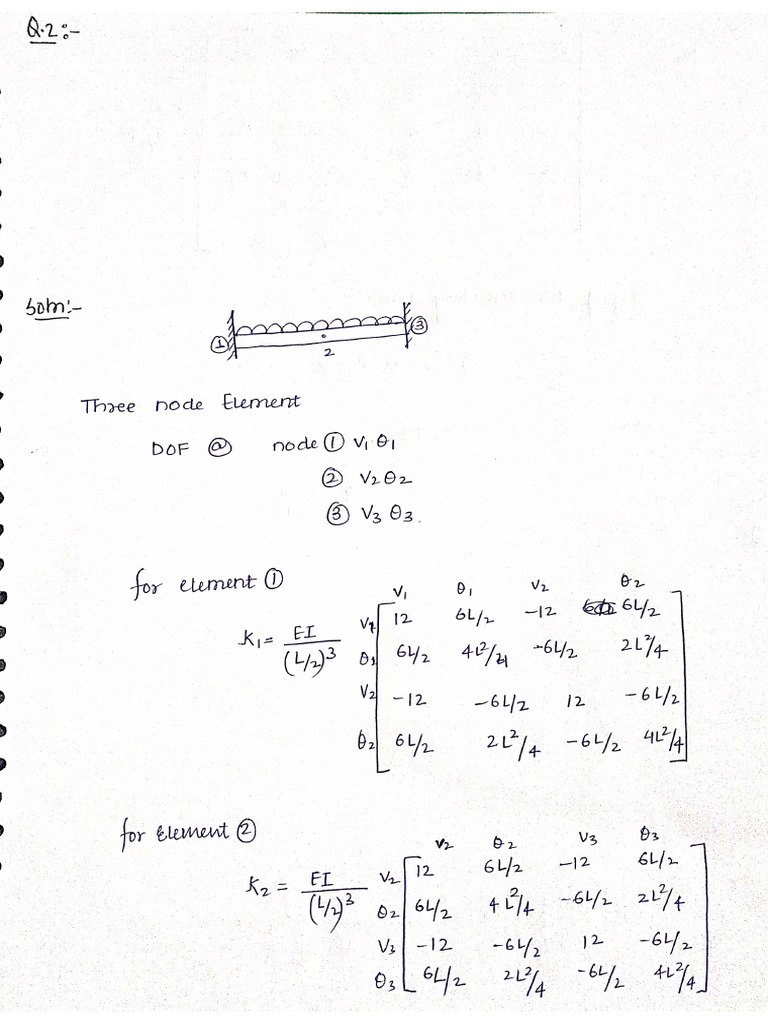 Q.2:-
Soln:-
① ③
2
Three node Element
DOF @ node ① V1 θ1
② V2 θ2
③ V3 θ3.
for element ①
V1 θ1 V2 θ2
K1 = EI/(L/2)^3
V1 12 6L/2 -12 6L/2
θ1 6L/2 4L²/4 -6L/2 2L²/4
V2 -12 -6L/2 12 -6L/2
θ2 6L/2 2L²/4 -6L/2 4L²/4
for Element ②
V2 θ2 V3 θ3
K2 = EI/(L/2)^3
V2 12 6L/2 -12 6L/2
θ2 6L/2 4L²/4 -6L/2 2L²/4
V3 -12 -6L/2 12 -6L/2
θ3 6L/2 2L²/4 -6L/2 4L²/4